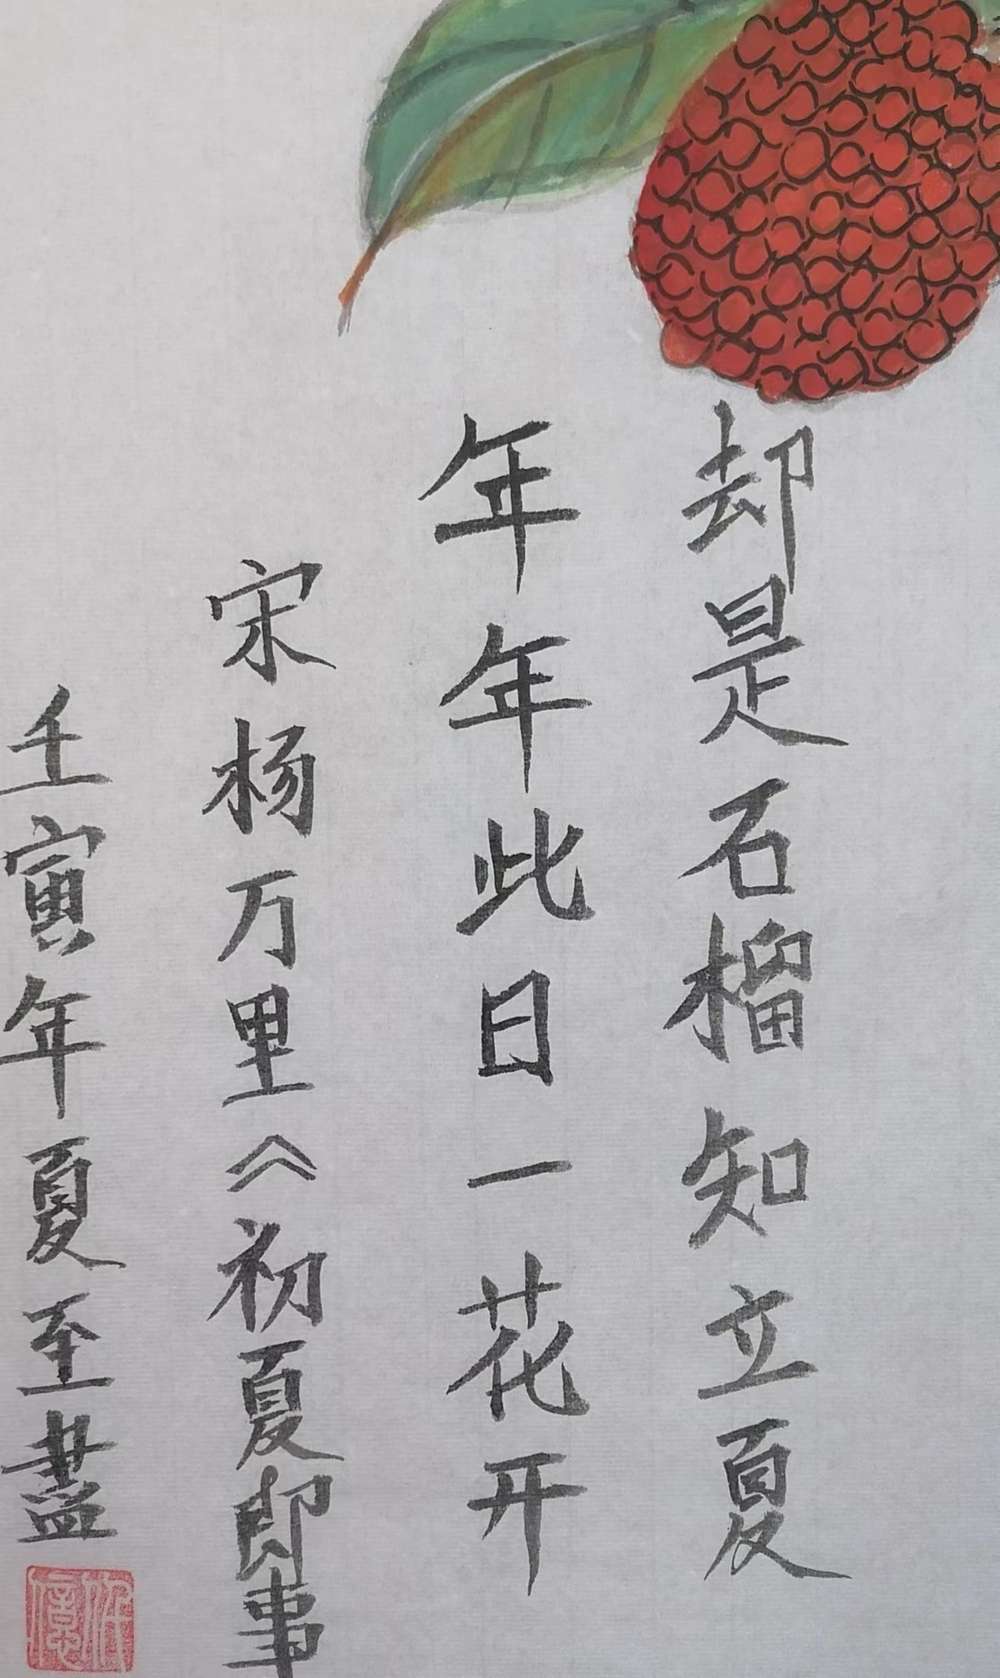 却是石榴知立夏
年年此日一花开
宋杨万里《初夏即事
壬寅年夏至盡